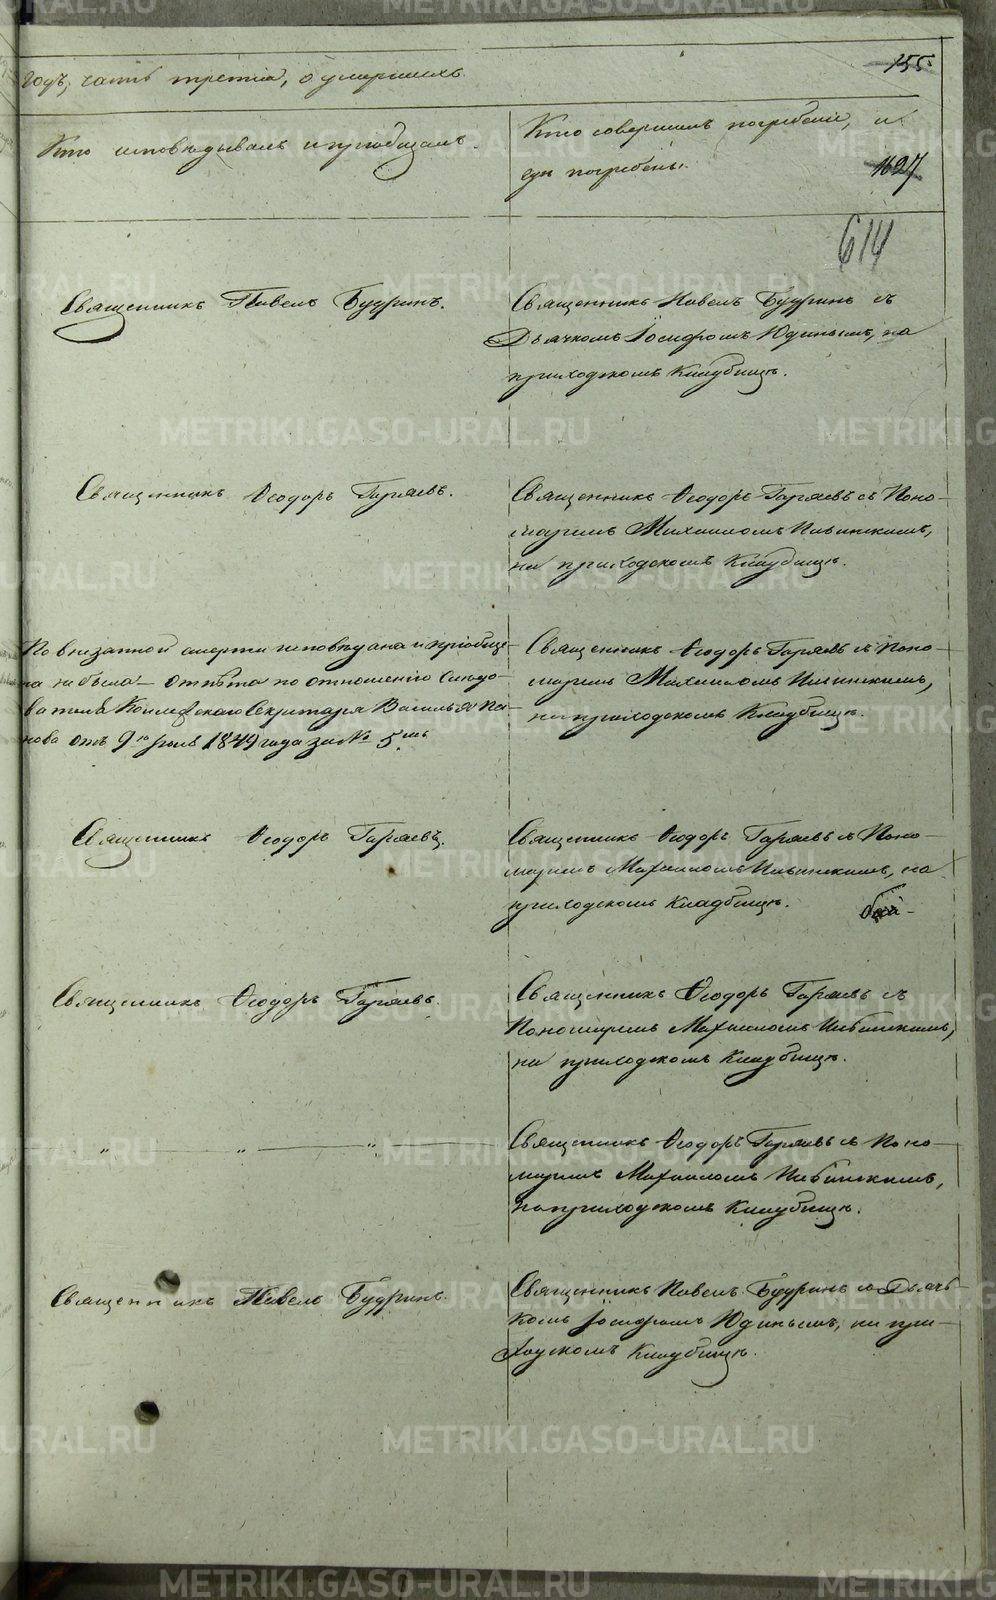 годъ, часть третія, о умершихъ.
155
Кто исповѣдывалъ и пріобщалъ.
Кто совершилъ погребеніе, и
гдѣ погребены.
1627
614
Священникъ Павелъ Будринъ.
Священникъ Павелъ Будринъ съ
Дьячкомъ Іосифомъ Юдинымъ, на
приходскомъ Кладбищѣ.
Священникъ Ѳеодоръ Гаряевъ.
Священникъ Ѳеодоръ Гаряевъ съ Поно-
маремъ Михаиломъ
на приходскомъ Кладбищѣ.
По внезапной смерти исповѣдана и пріобще-
на не была – отпѣта по отношенію Слѣдо-
вателя Секретаря Василья По-
пова отъ 9го 1849 года за № 5мъ
Священникъ Ѳеодоръ Гаряевъ съ Поно-
маремъ Михаиломъ
на приходскомъ Кладбищѣ.
Священникъ Ѳеодоръ Гаряевъ.
Священникъ Ѳеодоръ Гаряевъ съ Поно-
маремъ Михаиломъ на
приходскомъ Кладбищѣ.
Священникъ Ѳеодоръ Гаряевъ.
Священникъ Ѳеодоръ Гаряевъ съ
Пономаремъ Михаиломъ
на приходскомъ Кладбищѣ.
„ „ — „ —
Священникъ Ѳеодоръ Гаряевъ съ Поно-
маремъ Михаиломъ
на приходскомъ Кладбищѣ.
Священникъ Павелъ Будринъ.
Священникъ Павелъ Будринъ съ Дьяч-
комъ Іосифомъ Юдинымъ, на при-
ходскомъ Кладбищѣ.
METRIKI.GASO-URAL.RU